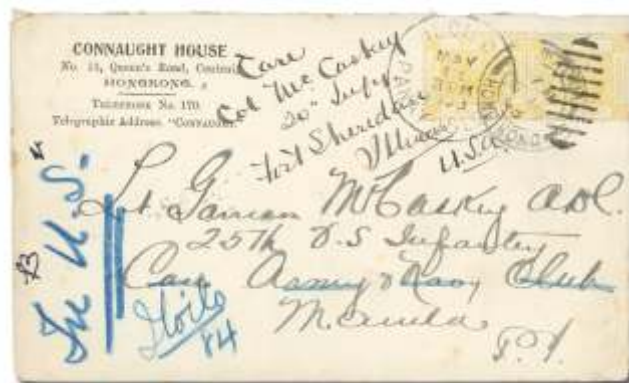 CONNAUGHT HOUSE
No. 13, Queen's Road, Central
HONGKONG.
TELEPHONE No. 170
Telegraphic Address, "CONNAUGHT"
Care
Col McCaskey
20" Inf
Fort Sheridan
Illinois
U.S.A.
Lt. McCaskey
25th U.S Infantry
Care Army & Navy Club
Manila
P.I.
In U.S.
Iloilo